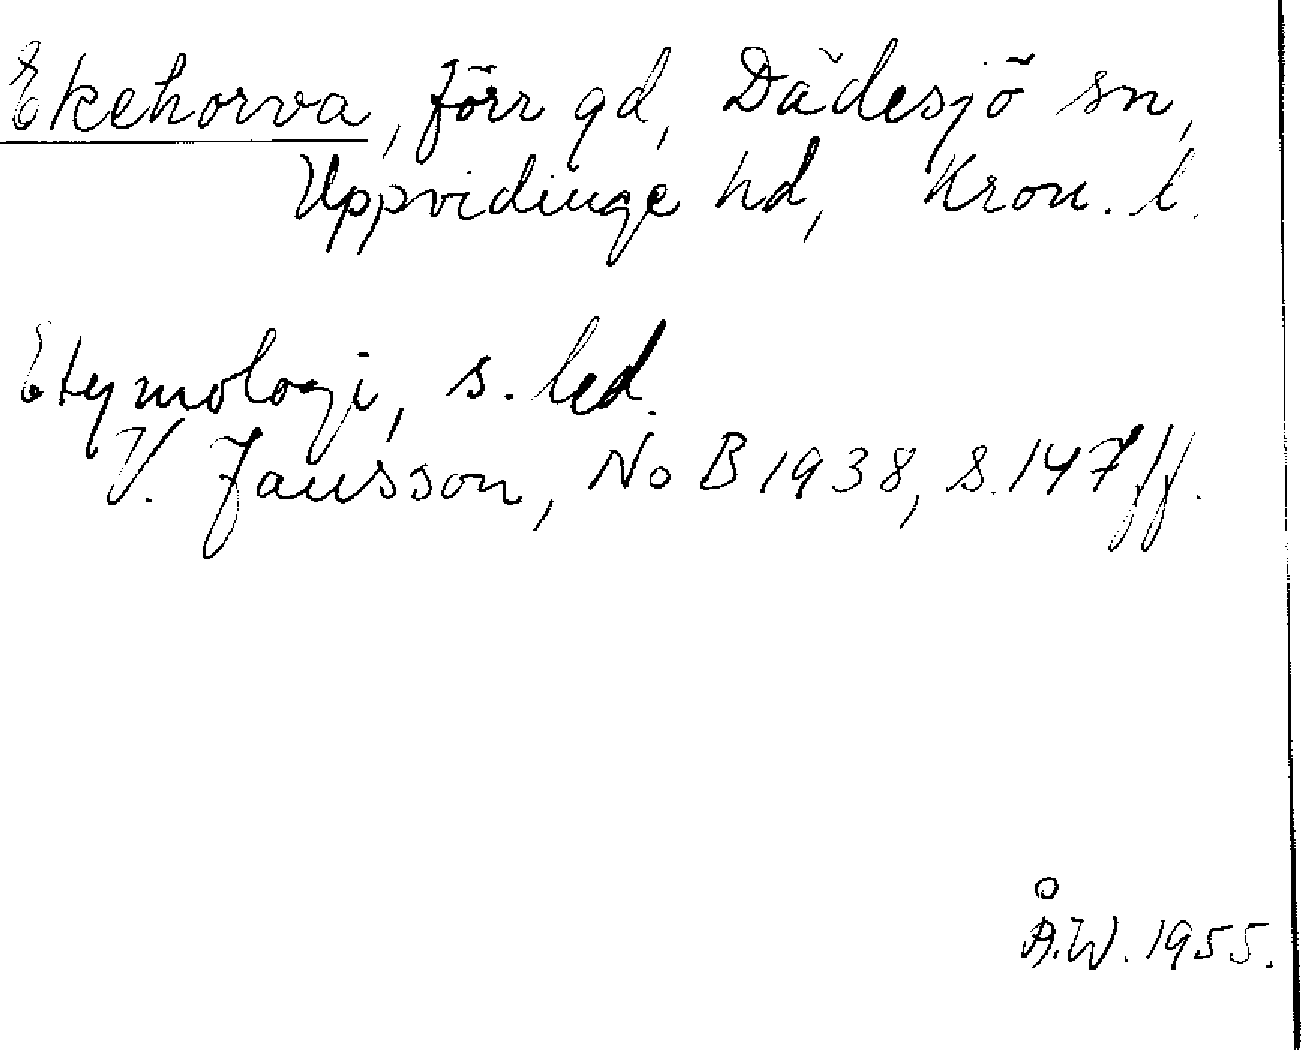 Ekehorva, förr gd, Dädesjö sn,
Uppvidinge hd, Kron. l.
Etymologi, s. led.
V. Jansson, NoB 1938, s. 147 ff.
Å.W. 1955.